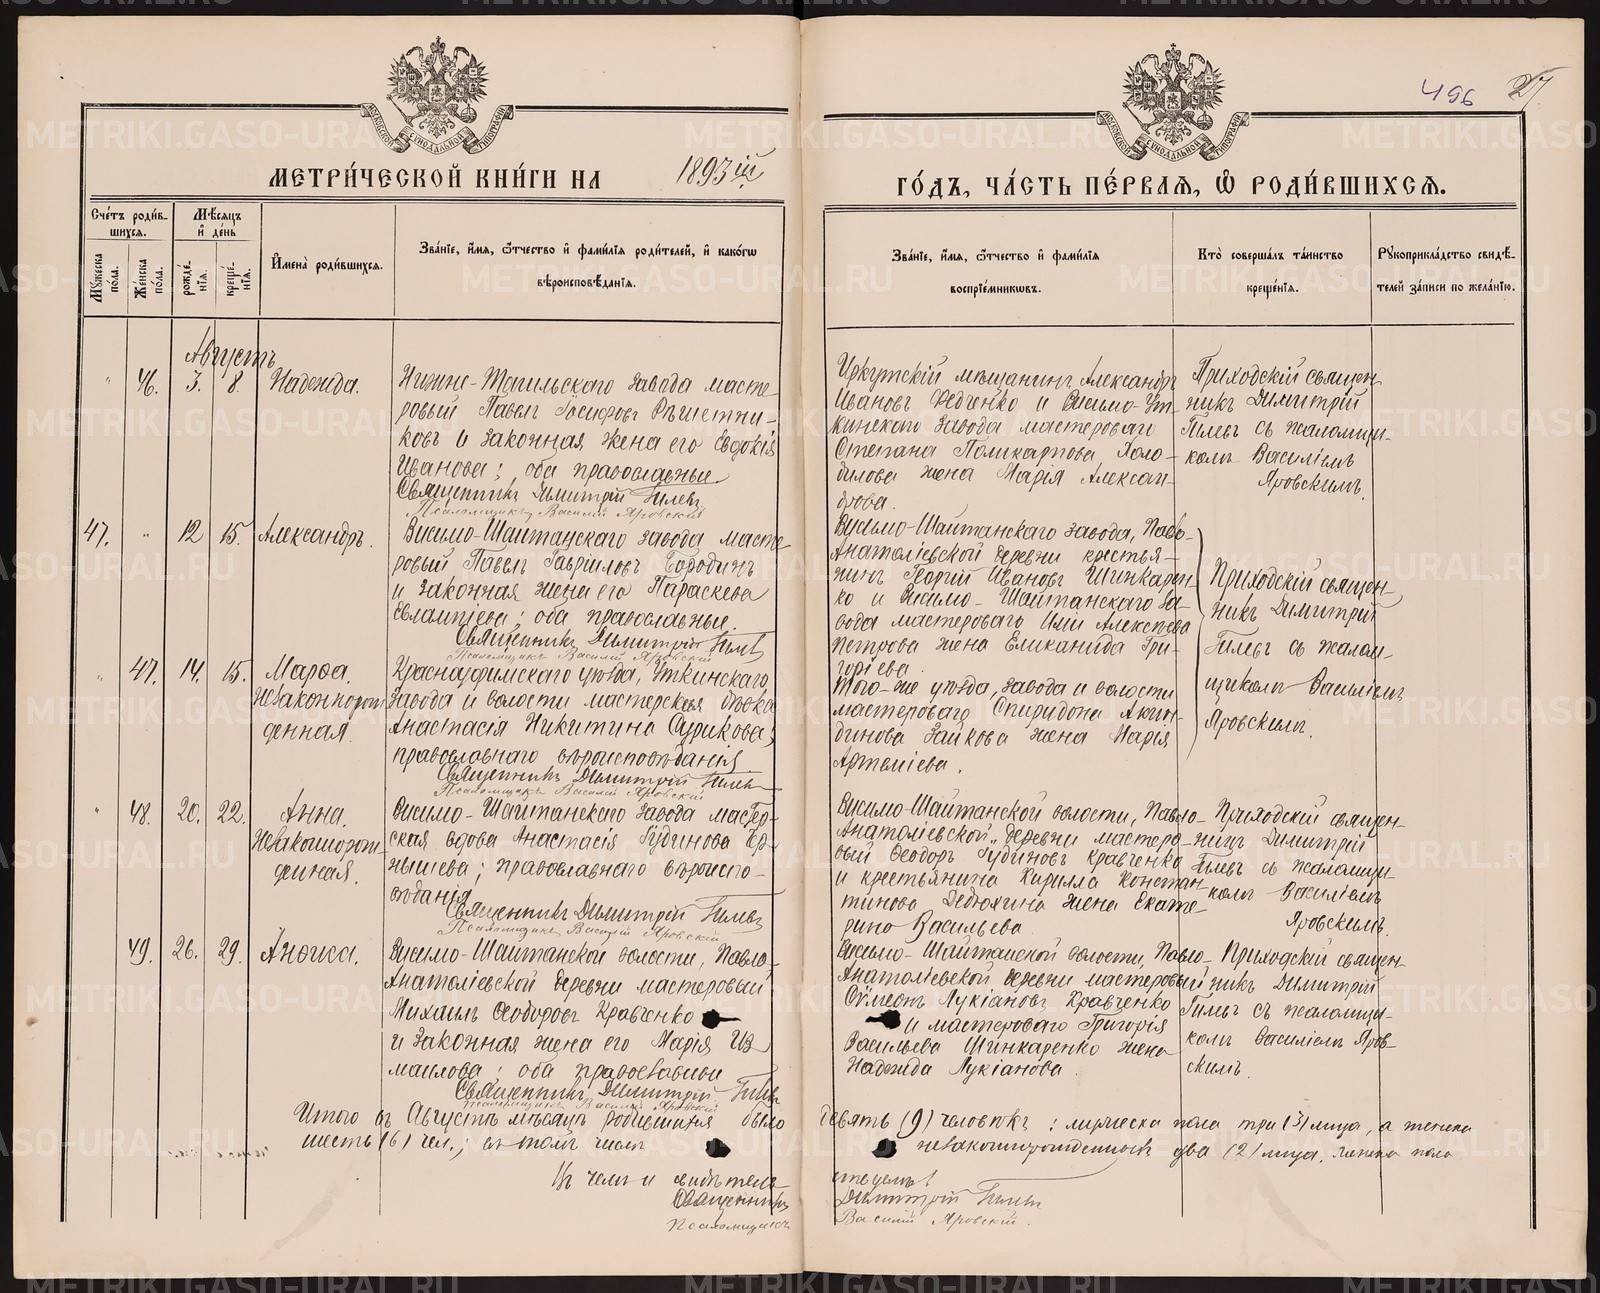 496 27
МОСКОВСКОЙ СѴНОДАЛЬНОЙ ТИПОГРАФІИ
МОСКОВСКОЙ СѴНОДАЛЬНОЙ ТИПОГРАФІИ
МЕТРИ́ЧЕСКОЙ КНИ́ГИ НА 1893ій ГО́ДЪ, ЧА́СТЬ ПЕ́РВАЯ, Ѡ РОДИ́ВШИХСЯ.
Сче́тъ роди́вшихся.
Му́жеска по́ла.
Же́нска по́ла.
Мѣ́сяцъ и де́нь
рожде́нія.
креще́нія.
И҆мена̀ роди́вшихся.
Зва́ніе, и҆́мя, ѻ҆́тчество и҆ фами́лія роди́телей, и҆ како́гѡ
вѣроисповѣ́данія.
Зва́ніе, и҆́мя, ѻ҆́тчество и҆ фами́лія
воспріе́мниковъ.
Кто̀ соверша́лъ та́инство
креще́нія.
Рꙋкоприкла́дство свидѣ́-
телей за́писи по жела́нію.
Августъ
" 46. 3. 8. Надежда.
Нижне-Тагильскаго завода масте-
ровый Павелъ Іосифовъ Рѣшетни-
ковъ и законная жена его Евдокія
Иванова; оба православные.
Священникъ Димитрій Гилевъ
Псаломщикъ Василій Яровскій
Иркутскій мѣщанинъ Александръ
Ивановъ Федченко и Висимо-Ут-
кинскаго завода мастероваго
Степана Поликарпова Холо-
дилова жена Марія Алексан-
дрова.
Приходскій священ-
никъ Димитрій
Гилевъ съ псаломщи-
комъ Василіемъ
Яровскимъ.
47. " 12 15. Александръ.
Висимо-Шайтанскаго завода масте-
ровый Павелъ Гавріиловъ Бородинъ
и законная жена его Параскева
Евлампіева; оба православные.
Священникъ Димитрій Гилевъ
Псаломщикъ Василій Яровскій
Висимо-Шайтанскаго завода, Павло-
Анатоліевской деревни крестья-
нинъ Георгій Ивановъ Шинкарен-
ко и Висимо-Шайтанскаго за-
вода мастероваго Иліи Алексѣева
Петрова жена Еликанида Гри-
горіева.
Приходскій священ-
никъ Димитрій
Гилевъ съ псалом-
щикомъ Василіемъ
Яровскимъ.
" 47. 14. 15. Марѳа.
Незаконнорож-
денная.
Красноуфимскаго уѣзда, Уткинскаго
завода и волости мастерская дѣвка
Анастасія Никитина Сурикова;
православнаго вѣроисповѣданія.
Священникъ Димитрій Гилевъ
Псаломщикъ Василій Яровскій
Того-же уѣзда, завода и волости
мастероваго Спиридона Акин-
динова Зайкова жена Марія
Артеміева.
" 48. 20. 22. Анна.
Незаконнорож-
денная.
Висимо-Шайтанскаго завода мастер-
ская вдова Анастасія Гудинова Ер-
нышева; православнаго вѣроиспо-
вѣданія
Священникъ Димитрій Гилевъ
Псаломщикъ Василій Яровскій
Висимо-Шайтанской волости, Павло-
Анатоліевской деревни мастеро-
вый Ѳеодоръ Гудиновъ Кравченко
и крестьянина Кирилла Констан-
тинова Дедюхина жена Екате-
рина Васильева.
Приходскій священ-
никъ Димитрій
Гилевъ съ псаломщи-
комъ Василіемъ
Яровскимъ.
49. 26. 29. Анѳиса.
Висимо-Шайтанской волости, Павло-
Анатоліевской деревни мастеровый
Михаилъ Ѳеодоровъ Кравченко
и законная жена его Марія Из-
маилова; оба православные
Священникъ Димитрій Гилевъ
Псаломщикъ Василій Яровскій
Висимо-Шайтанской волости, Павло-
Анатоліевской деревни мастеровый
Лукіановъ Кравченко
и мастероваго Григорія
Васильева Шинкаренко жена
Надежда Лукіанова.
Приходскій священ-
никъ Димитрій
Гилевъ съ псаломщи-
комъ Василіемъ Яров-
скимъ.
Итого въ Августѣ мѣсяцѣ родившихся было девять (9) человѣкъ: мужеска пола три (3) лица, а женска
шесть (6) чел.; въ томъ числѣ незаконнорожденныхъ два (2) лица женска пола
Въ чемъ и свидѣтельствуемъ:
Священникъ Димитрій Гилевъ
Псаломщикъ Василій Яровскій.
METRIKI.GASO-URAL.RU